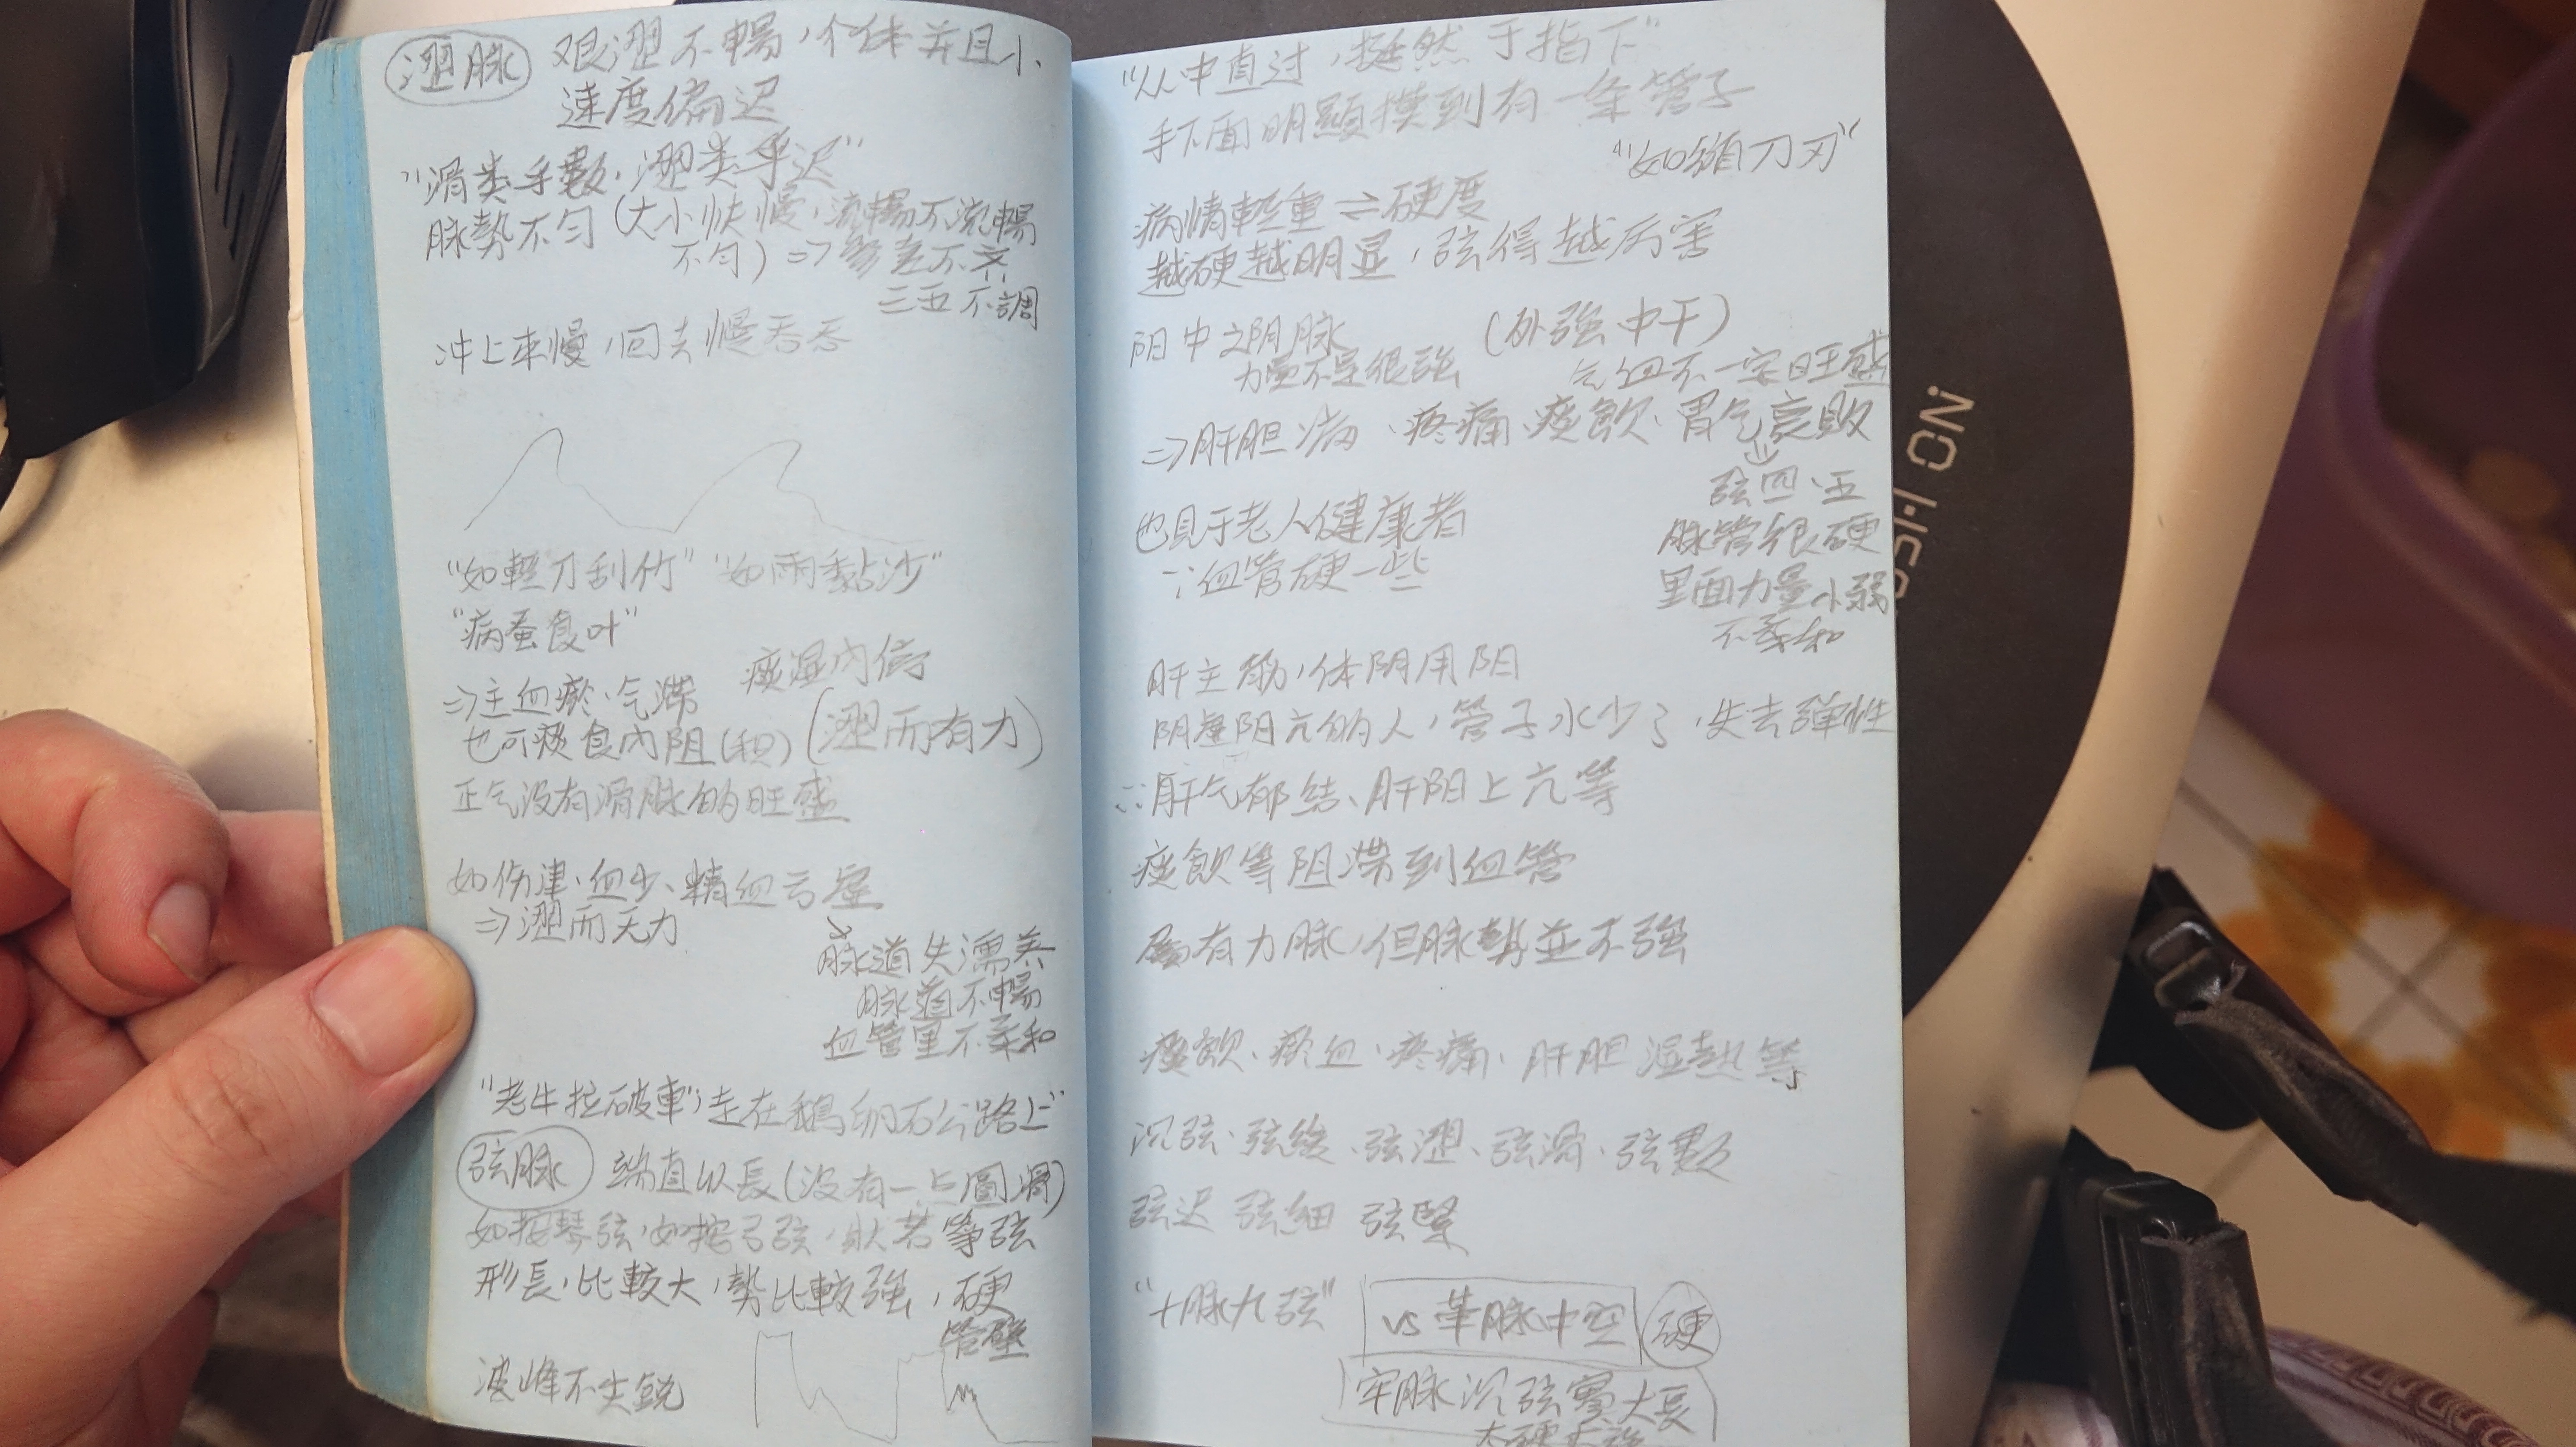 澀脉 艰澀不暢，个体并且小
速度偏迟
"滑类乎數，澀类乎迟"
脉勢不匀（大小快慢，流暢不流暢
不匀）⇒参差不齐
三五不調
冲上来慢，回去慢吞吞
"如輕刀刮竹" "如雨黏沙"
"病蚕食叶"
痰湿内停
⇒主血瘀、气滞
也可痰食内阻(积)（澀而有力）
正气没有滑脉的旺盛
如伤津、血少、精血亏虚
⇒澀而无力
脉道失濡养
脉道不暢
血管里不柔和
"老牛拉破車"，走在鵝卵石公路上"
弦脉 端直以長（没有一点圓滑）
如按琴弦，如按弓弦，状若箏弦
形長，比較大，勢比較強，硬
管壁
波峰不尖銳
"从中直过，挺然于指下"
手下面明顯摸到有一条管子
"如循刀刃"
病情輕重⇌硬度
越硬越明显，弦得越厉害
阳中之阴脉 （外強中干）
力量不是很強 气血不一定旺盛
⇒肝胆病、疼痛、痰飲、胃气衰敗
弦四、五
脉管很硬
里面力量小弱
不柔和
也見于老人健康者
∵血管硬一些
肝主筋，体阴用阳
阴虚阳亢的人，管子水少了，失去弹性
∴肝气郁结、肝阳上亢等
痰飲等阻滞到血管
属有力脉，但脉勢並不強
痰飲、瘀血、疼痛、肝胆湿熱等
沉弦、弦緩、弦澀、弦滑、弦數
弦迟 弦細 弦緊
"十脉九弦" vs 革脉中空 硬
牢脉沉弦實大長
PUSH ON